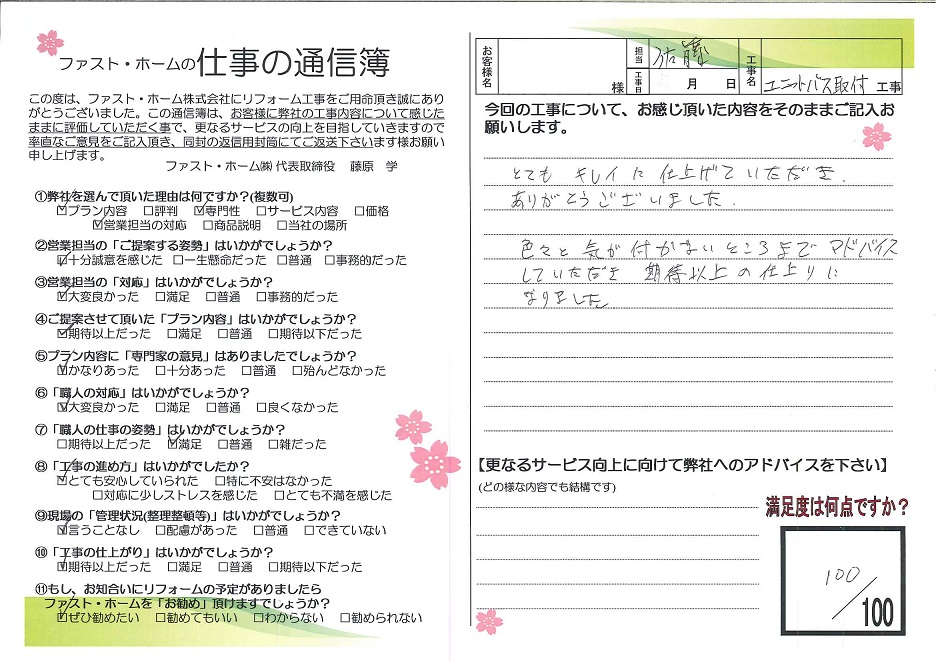 ファスト・ホームの仕事の通信簿
この度は、ファスト・ホーム株式会社にリフォーム工事をご用命頂き誠にあり
がとうございました。この通信簿は、お客様に弊社の工事内容について感じた
ままに評価していただく事で、更なるサービスの向上を目指していきますので
率直なご意見をご記入頂き、同封の返信用封筒にてご返送下さいます様お願い
申し上げます。
ファスト・ホーム㈱ 代表取締役 藤原 学
①弊社を選んで頂いた理由は何ですか?(複数可)
☑プラン内容 □評判 ☑専門性 □サービス内容 □価格
☑営業担当の対応 □商品説明 □当社の場所
②営業担当の「ご提案する姿勢」はいかがでしょうか?
☑十分誠意を感じた □一生懸命だった □普通 □事務的だった
③営業担当の「対応」はいかがでしょうか?
☑大変良かった □満足 □普通 □事務的だった
④ご提案させて頂いた「プラン内容」はいかがでしょうか?
☑期待以上だった □満足 □普通 □期待以下だった
⑤プラン内容に「専門家の意見」はありましたでしょうか?
☑かなりあった □十分あった □普通 □殆んどなかった
⑥「職人の対応」はいかがでしょうか?
☑大変良かった □満足 □普通 □良くなかった
⑦「職人の仕事の姿勢」はいかがでしょうか?
□期待以上だった ☑満足 □普通 □雑だった
⑧「工事の進め方」はいかがでしたか?
☑とても安心していられた □特に不安はなかった
□対応に少しストレスを感じた □とても不満を感じた
⑨現場の「管理状況(整理整頓等)」はいかがでしょうか?
☑言うことなし □配慮があった □普通 □できていない
⑩「工事の仕上がり」はいかがでしょうか?
☑期待以上だった □満足 □普通 □期待以下だった
⑪もし、お知合いにリフォームの予定がありましたら
ファスト・ホームを「お勧め」頂けますでしょうか?
☑ぜひ勧めたい □勧めてもいい □わからない □勧められない
お客様名 様 担当 佐藤 工事日 月 日 工事名 ユニットバス取付 工事
今回の工事について、お感じ頂いた内容をそのままご記入お
願いします。
とても キレイに仕上げていただき.
ありがとうございました.
色々と気が付かないところまでアドバイス
していただき 期待以上の仕上りに
なりました
【更なるサービス向上に向けて弊社へのアドバイスを下さい】
(どの様な内容でも結構です)
満足度は何点ですか?
100/100